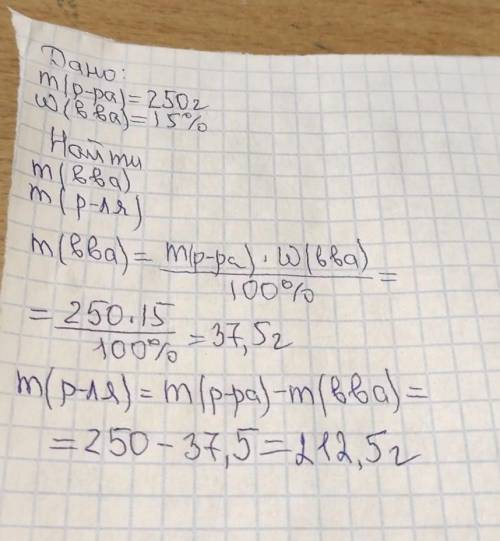 Дано:
m(р-ра)=250г
w(вва)=15%
Найти
m(вва)
m(р-ля)
m(вва)= m(р-ра)·w(вва) =
100%
= 250.15 =37,5г
100%
m(р-ля)=m(р-ра)-m(вва)=
=250-37,5=212,5г